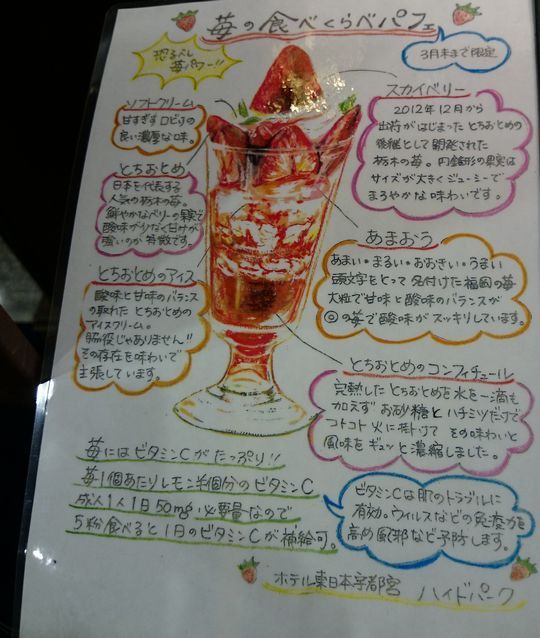 苺の食べくらべパフェ
3月末まで限定
恐るべし
苺パワー!!
ソフトクリーム
甘すぎず口どけの
良い濃厚な味。
とちおとめ
日本を代表する
人気の栃木の苺。
鮮やかなベリーの果実で
酸味が少なく甘けが
強いのが特徴です。
とちおとめのアイス
酸味と甘味のバランス
の取れた とちおとめの
アイスクリーム。
脇役じゃありません!!
その存在を味わいで
主張しています。
スカイベリー
2012年12月から
出荷がはじまった とちおとめの
後継として開発された
栃木の苺。円錐形の果実は
サイズが大きくジューシーで
まろやかな味わいです。
あまおう
あまい・まるい・おおきい・うまい
頭文字をとって名付けた福岡の苺
大粒で甘味と酸味のバランスが
◎の苺で酸味がスッキリしています。
とちおとめのコンフィチュール
完熟したとちおとめを水を一滴も
加えず お砂糖とハチミツだけで
コトコト火に掛けて その味わいと
風味をギュッと濃縮しました。
苺にはビタミンCがたっぷり!!
苺1個あたりレモン半個分のビタミンC
成人1人1日50mg必要量なので
5粒食べると1日のビタミンCが補給可。
ビタミンCは肌のトラブルに
有効。ウィルスなどの免疫力を
高め風邪など予防します。
ホテル東日本宇都宮 ハイドパーク